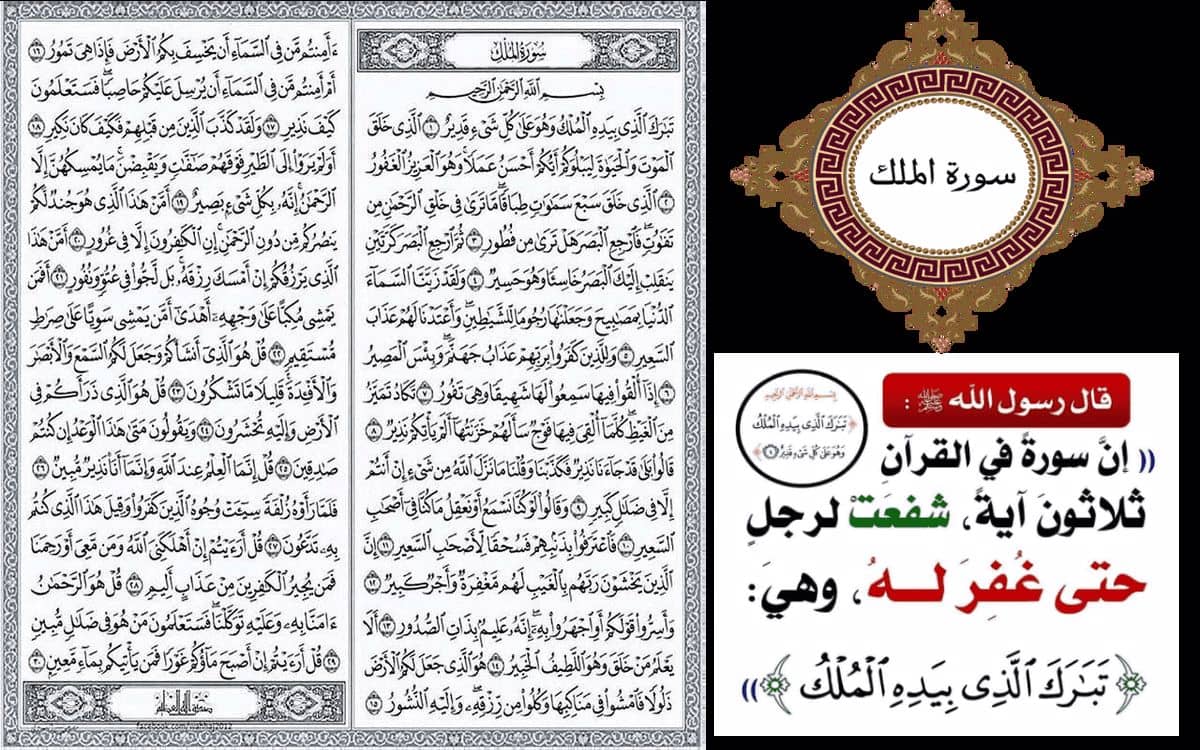 سُورَةُ الْمُلْكِ
بِسْمِ اللَّهِ الرَّحْمَٰنِ الرَّحِيمِ
تَبَٰرَكَ ٱلَّذِى بِيَدِهِ ٱلْمُلْكُ وَهُوَ عَلَىٰ كُلِّ شَىْءٍ قَدِيرٌ ١ ٱلَّذِى خَلَقَ
ٱلْمَوْتَ وَٱلْحَيَوٰةَ لِيَبْلُوَكُمْ أَيُّكُمْ أَحْسَنُ عَمَلًا وَهُوَ ٱلْعَزِيزُ ٱلْغَفُورُ
٢ ٱلَّذِى خَلَقَ سَبْعَ سَمَٰوَٰتٍ طِبَاقًا مَّا تَرَىٰ فِى خَلْقِ ٱلرَّحْمَٰنِ مِن
تَفَٰوُتٍ فَٱرْجِعِ ٱلْبَصَرَ هَلْ تَرَىٰ مِن فُطُورٍ ٣ ثُمَّ ٱرْجِعِ ٱلْبَصَرَ كَرَّتَيْنِ
يَنقَلِبْ إِلَيْكَ ٱلْبَصَرُ خَاسِئًا وَهُوَ حَسِيرٌ ٤ وَلَقَدْ زَيَّنَّا ٱلسَّمَآءَ
ٱلدُّنْيَا بِمَصَٰبِيحَ وَجَعَلْنَٰهَا رُجُومًا لِّلشَّيَٰطِينِ وَأَعْتَدْنَا لَهُمْ عَذَابَ
ٱلسَّعِيرِ ٥ وَلِلَّذِينَ كَفَرُوا۟ بِرَبِّهِمْ عَذَابُ جَهَنَّمَ وَبِئْسَ ٱلْمَصِيرُ
٦ إِذَآ أُلْقُوا۟ فِيهَا سَمِعُوا۟ لَهَا شَهِيقًا وَهِىَ تَفُورُ ٧ تَكَادُ تَمَيَّزُ
مِنَ ٱلْغَيْظِ كُلَّمَآ أُلْقِىَ فِيهَا فَوْجٌ سَأَلَهُمْ خَزَنَتُهَآ أَلَمْ يَأْتِكُمْ نَذِيرٌ ٨
قَالُوا۟ بَلَىٰ قَدْ جَآءَنَا نَذِيرٌ فَكَذَّبْنَا وَقُلْنَا مَا نَزَّلَ ٱللَّهُ مِن شَىْءٍ إِنْ أَنتُمْ
إِلَّا فِى ضَلَٰلٍ كَبِيرٍ ٩ وَقَالُوا۟ لَوْ كُنَّا نَسْمَعُ أَوْ نَعْقِلُ مَا كُنَّا فِىٓ أَصْحَٰبِ
ٱلسَّعِيرِ ١٠ فَٱعْتَرَفُوا۟ بِذَنۢبِهِمْ فَسُحْقًا لِّأَصْحَٰبِ ٱلسَّعِيرِ ١١ إِنَّ
ٱلَّذِينَ يَخْشَوْنَ رَبَّهُم بِٱلْغَيْبِ لَهُم مَّغْفِرَةٌ وَأَجْرٌ كَبِيرٌ ١٢
وَأَسِرُّوا۟ قَوْلَكُمْ أَوِ ٱجْهَرُوا۟ بِهِۦٓ إِنَّهُۥ عَلِيمٌۢ بِذَاتِ ٱلصُّدُورِ ١٣ أَلَا
يَعْلَمُ مَنْ خَلَقَ وَهُوَ ٱللَّطِيفُ ٱلْخَبِيرُ ١٤ هُوَ ٱلَّذِى جَعَلَ لَكُمُ ٱلْأَرْضَ
ذَلُولًا فَٱمْشُوا۟ فِى مَنَاكِبِهَا وَكُلُوا۟ مِن رِّزْقِهِۦ وَإِلَيْهِ ٱلنُّشُورُ ١٥
ءَأَمِنتُم مَّن فِى ٱلسَّمَآءِ أَن يَخْسِفَ بِكُمُ ٱلْأَرْضَ فَإِذَا هِىَ تَمُورُ ١٦
أَمْ أَمِنتُم مَّن فِى ٱلسَّمَآءِ أَن يُرْسِلَ عَلَيْكُمْ حَاصِبًا فَسَتَعْلَمُونَ
كَيْفَ نَذِيرِ ١٧ وَلَقَدْ كَذَّبَ ٱلَّذِينَ مِن قَبْلِهِمْ فَكَيْفَ كَانَ نَكِيرِ ١٨
أَوَلَمْ يَرَوْا۟ إِلَى ٱلطَّيْرِ فَوْقَهُمْ صَٰٓفَّٰتٍ وَيَقْبِضْنَ مَا يُمْسِكُهُنَّ إِلَّا
ٱلرَّحْمَٰنُ إِنَّهُۥ بِكُلِّ شَىْءٍۭ بَصِيرٌ ١٩ أَمَّنْ هَٰذَا ٱلَّذِى هُوَ جُندٌ لَّكُمْ
يَنصُرُكُم مِّن دُونِ ٱلرَّحْمَٰنِ إِنِ ٱلْكَٰفِرُونَ إِلَّا فِى غُرُورٍ ٢٠ أَمَّنْ هَٰذَا
ٱلَّذِى يَرْزُقُكُمْ إِنْ أَمْسَكَ رِزْقَهُۥ بَل لَّجُّوا۟ فِى عُتُوٍّ وَنُفُورٍ ٢١ أَفَمَن
يَمْشِى مُكِبًّا عَلَىٰ وَجْهِهِۦٓ أَهْدَىٰٓ أَمَّن يَمْشِى سَوِيًّا عَلَىٰ صِرَٰطٍ
مُّسْتَقِيمٍ ٢٢ قُلْ هُوَ ٱلَّذِىٓ أَنشَأَكُمْ وَجَعَلَ لَكُمُ ٱلسَّمْعَ وَٱلْأَبْصَٰرَ
وَٱلْأَفْـِٔدَةَ قَلِيلًا مَّا تَشْكُرُونَ ٢٣ قُلْ هُوَ ٱلَّذِى ذَرَأَكُمْ فِى
ٱلْأَرْضِ وَإِلَيْهِ تُحْشَرُونَ ٢٤ وَيَقُولُونَ مَتَىٰ هَٰذَا ٱلْوَعْدُ إِن كُنتُمْ
صَٰدِقِينَ ٢٥ قُلْ إِنَّمَا ٱلْعِلْمُ عِندَ ٱللَّهِ وَإِنَّمَآ أَنَا۠ نَذِيرٌ مُّبِينٌ ٢٦
فَلَمَّا رَأَوْهُ زُلْفَةً سِيٓـَٔتْ وُجُوهُ ٱلَّذِينَ كَفَرُوا۟ وَقِيلَ هَٰذَا ٱلَّذِى كُنتُم
بِهِۦ تَدَّعُونَ ٢٧ قُلْ أَرَءَيْتُمْ إِنْ أَهْلَكَنِىَ ٱللَّهُ وَمَن مَّعِىَ أَوْ رَحِمَنَا
فَمَن يُجِيرُ ٱلْكَٰفِرِينَ مِنْ عَذَابٍ أَلِيمٍ ٢٨ قُلْ هُوَ ٱلرَّحْمَٰنُ
ءَامَنَّا بِهِۦ وَعَلَيْهِ تَوَكَّلْنَا فَسَتَعْلَمُونَ مَنْ هُوَ فِى ضَلَٰلٍ مُّبِينٍ
٢٩ قُلْ أَرَءَيْتُمْ إِنْ أَصْبَحَ مَآؤُكُمْ غَوْرًا فَمَن يَأْتِيكُم بِمَآءٍ مَّعِينٍۭ ٣٠
facebook.com/wahhaj2012
سورة الملك
قال رسول الله ﷺ :
بِسْمِ اللَّهِ الرَّحْمَٰنِ الرَّحِيمِ
تَبَٰرَكَ ٱلَّذِى بِيَدِهِ ٱلْمُلْكُ
وَهُوَ عَلَىٰ كُلِّ شَىْءٍ قَدِيرٌ ١
(( إنَّ سورةً في القرآنِ
ثلاثونَ آيةً، شفعَتْ لرجلٍ
حتى غُفِرَ لهُ، وهيَ:
﴿ تَبَٰرَكَ ٱلَّذِى بِيَدِهِ ٱلْمُلْكُ ﴾ ))